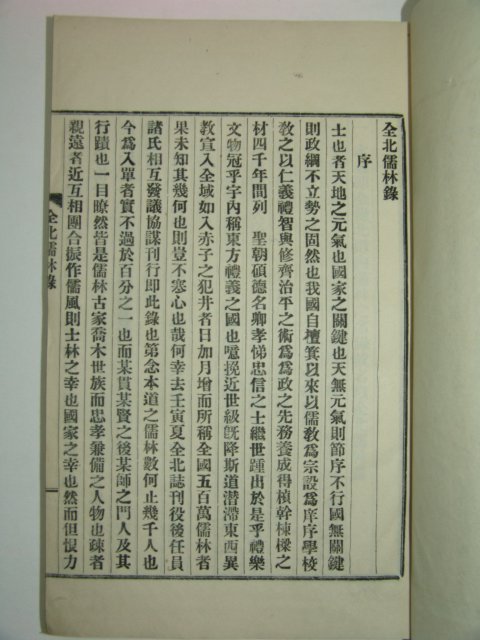 全北儒林錄
序
士也者天地之元氣也國家之關鍵也天無元氣則節序不行國無關鍵
則政綱不立勢之固然也我國自檀箕以來以儒教爲宗設爲庠序學校
教之以仁義禮智與修齊治平之術爲爲政之先務養成得楨幹棟樑之
材四千年間列　聖朝碩德名卿孝悌忠信之士繼世踵出於是乎禮樂
文物冠乎宇內稱東方禮義之國也噫挽近世級旣降斯道潛滯東西異
教宣入全域如入赤子之犯井者日加月增而所稱全國五百萬儒林者
果未知其幾何也則豈不寒心也哉何幸去壬寅夏全北誌刊役後任員
諸氏相互發議協謀刊行即此錄也第念本道之儒林數何止幾千人也
今爲入單者實不過於百分之一也而某貫某賢之後某師之門人及其
行蹟也一目瞭然皆是儒林古家喬木世族而忠孝兼備之人物也踈者
親遠者近互相團合振作儒風則士林之幸也國家之幸也然而但恨力
全北儒林錄